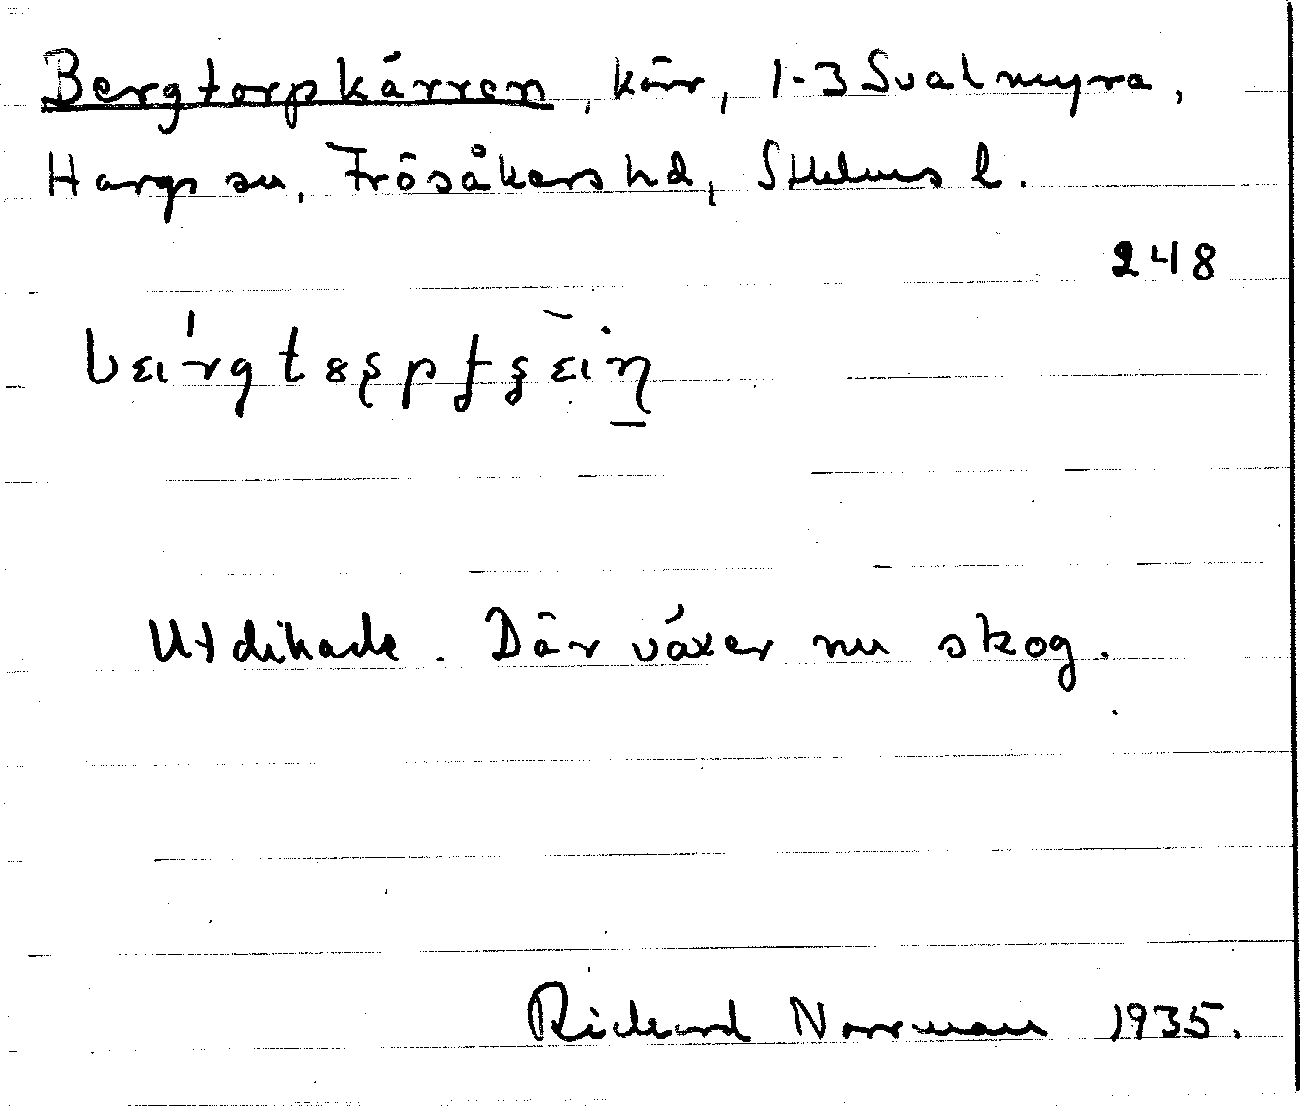 Bergtorpkärren, kärr, 1-3 Svalmyra,
Hargs sn, Frösåkers hd, Sthlms l.
248
Utdikade. Där växer nu skog.
Richard Norrman 1935.